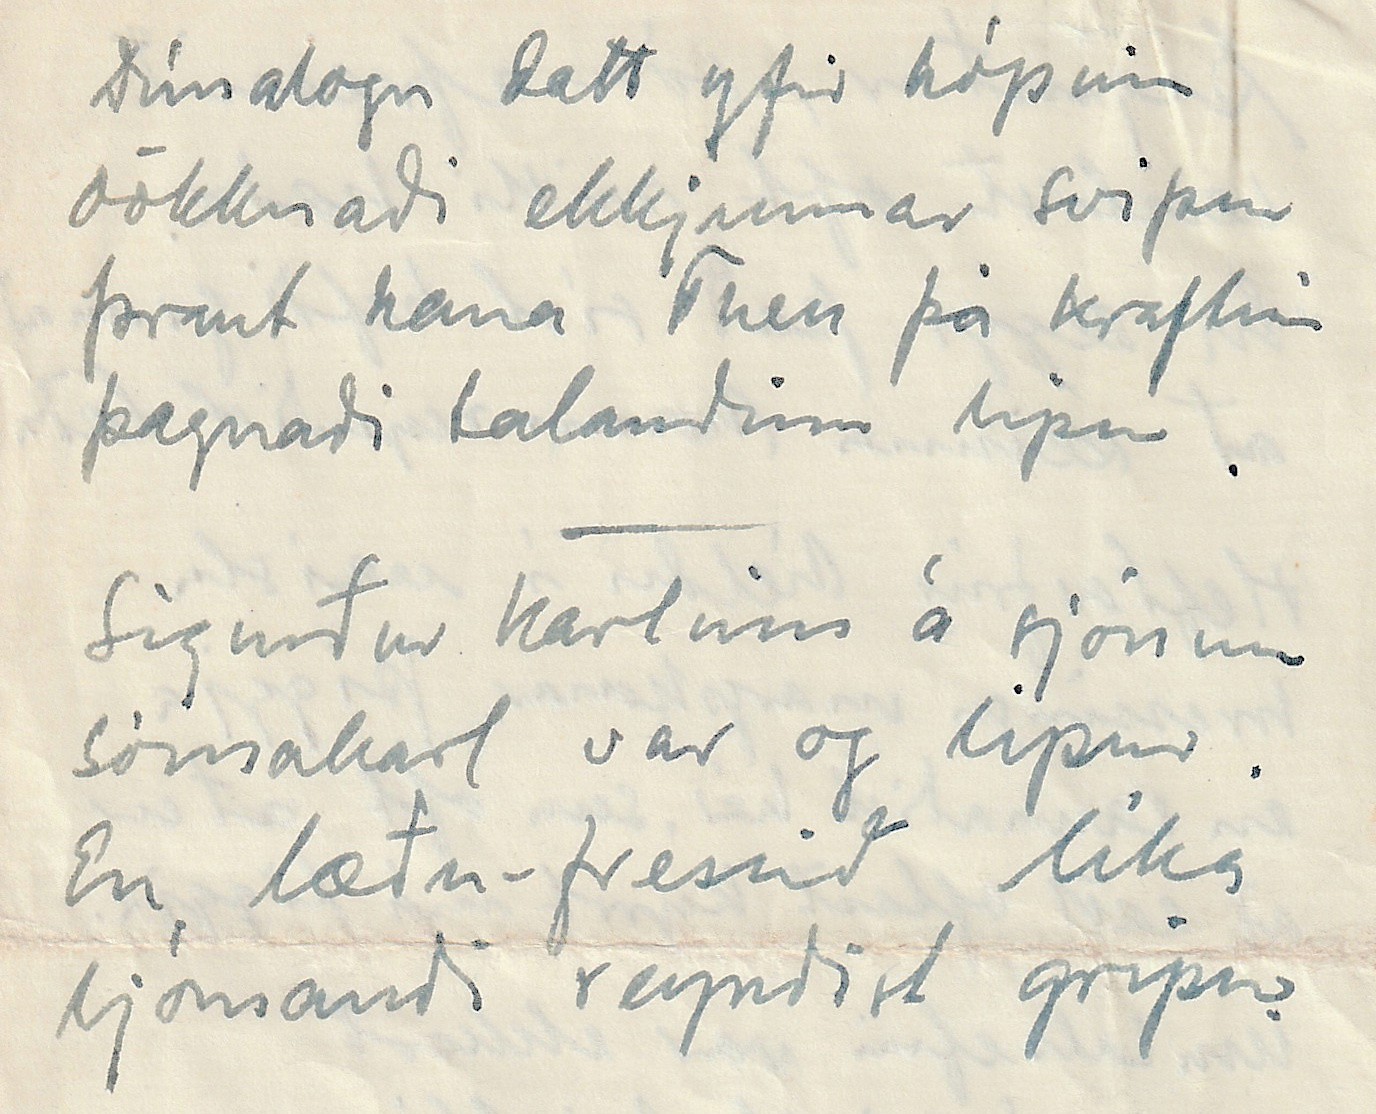 Dúnalogn datt yfir hópinn
dökknaði ekkjunnar svipur
þraut hana þá kraftinn
þagnaði talandinn lipur.
Sigurður Karlinn á sjónum
sómakarl var og lipur.
En, læðu-fressið líka
ljómandi reyndist gripur.